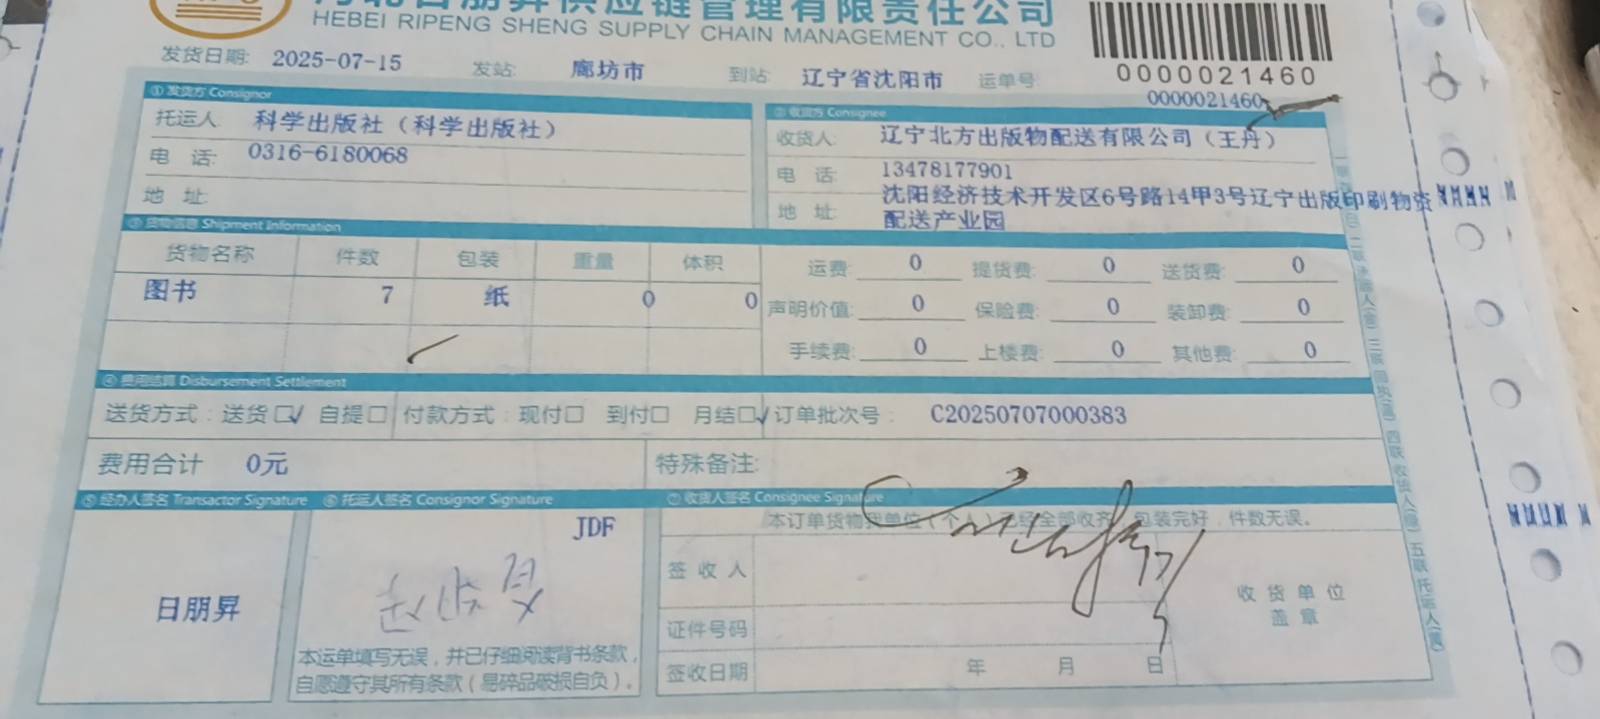 河北日朋昇供应链管理有限责任公司
HEBEI RIPENG SHENG SUPPLY CHAIN MANAGEMENT CO., LTD
0000021460
0000021460
发货日期: 2025-07-15 发站: 廊坊市 到站: 辽宁省沈阳市 运单号
① 发货方 Consignor
托运人 科学出版社（科学出版社）
电 话: 0316-6180068
地 址:
② 收货方 Consignee
收货人: 辽宁北方出版物配送有限公司（王丹）
电 话: 13478177901
地 址: 沈阳经济技术开发区6号路14甲3号辽宁出版印刷物资
配送产业园
③ 货物信息 Shipment Information
货物名称 件数 包装 重量 体积
图书 7 纸 0 0
运费: 0 提货费: 0 送货费: 0
声明价值: 0 保险费: 0 装卸费: 0
手续费: 0 上楼费: 0 其他费: 0
④ 费用结算 Disbursement Settlement
送货方式: 送货☐√ 自提☐ 付款方式: 现付☐ 到付☐ 月结☐√ 订单批次号: C20250707000383
费用合计 0元 特殊备注:
⑤ 经办人签名 Transactor Signature ⑥ 托运人签名 Consignor Signature ⑦ 收货人签名 Consignee Signature
日朋昇
JDF
本运单填写无误，并已仔细阅读背书条款，
自愿遵守其所有条款（易碎品破损自负）。
本订单货物我单位（个人）已经全部收齐，包装完好，件数无误。
签 收 人
证件号码
签收日期 年 月 日
收 货 单 位
盖 章